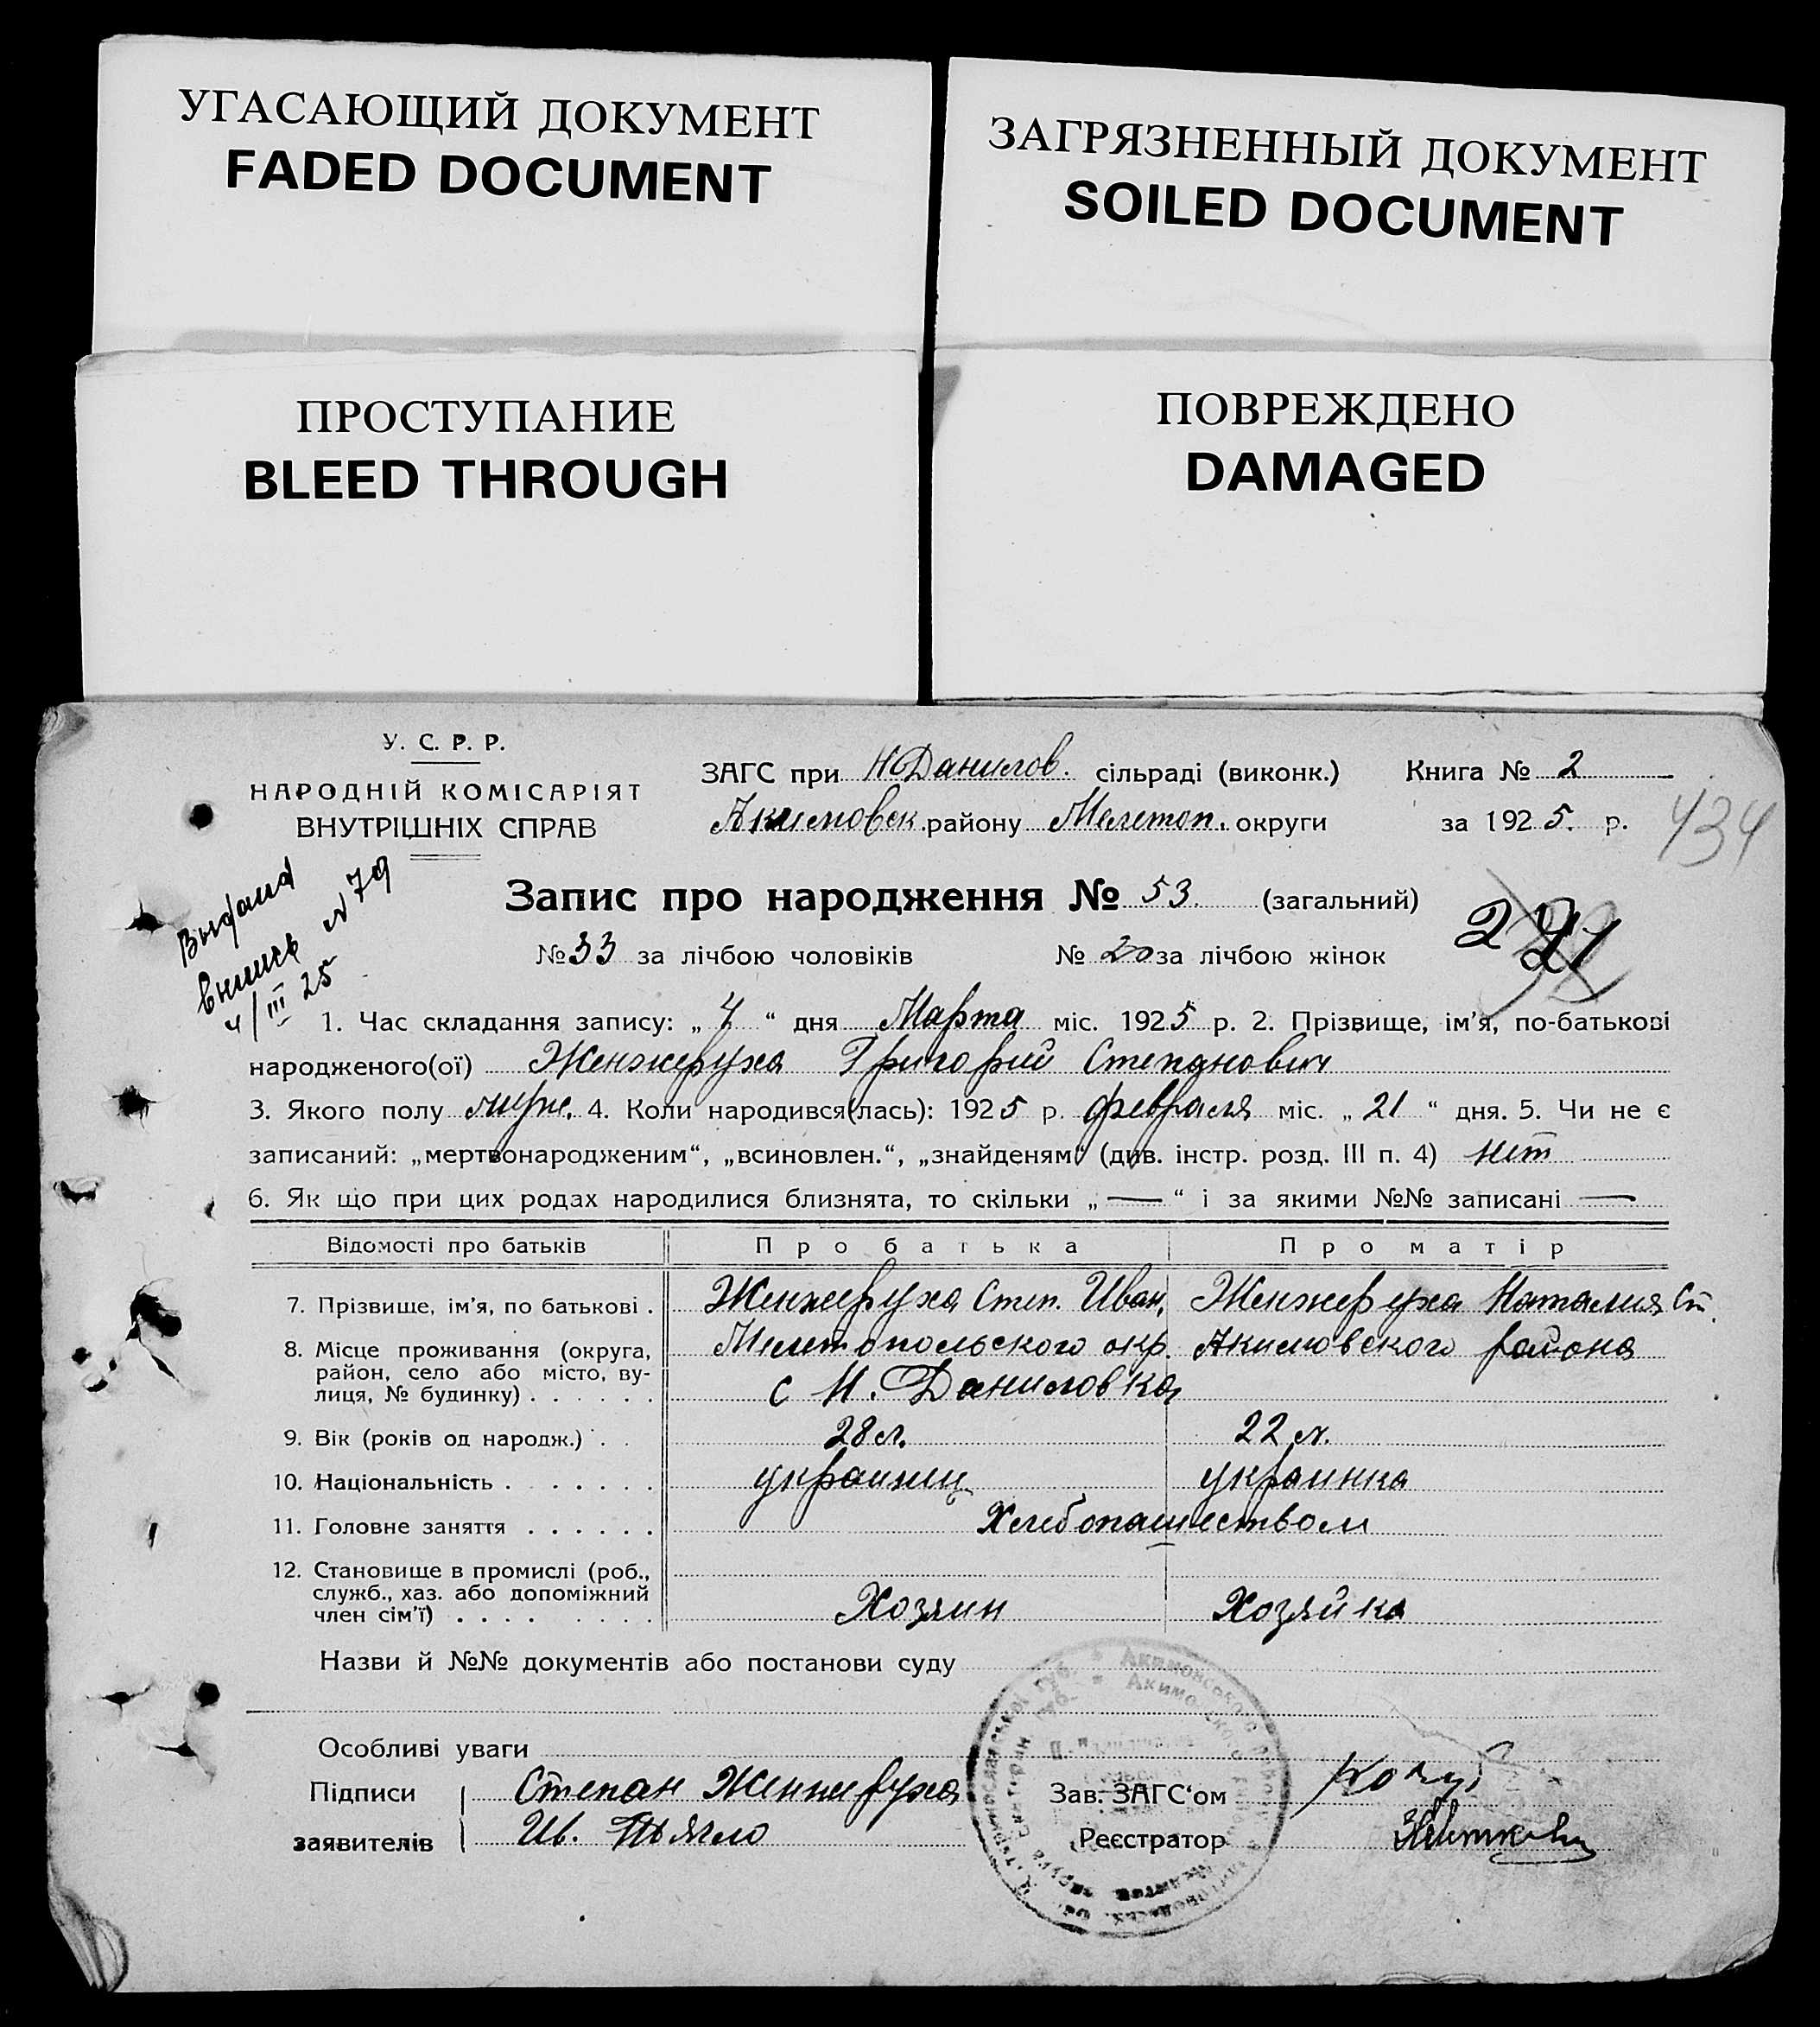 УГАСАЮЩИЙ ДОКУМЕНТ
FADED DOCUMENT
ЗАГРЯЗНЕННЫЙ ДОКУМЕНТ
SOILED DOCUMENT
ПРОСТУПАНИЕ
BLEED THROUGH
ПОВРЕЖДЕНО
DAMAGED
У. С. Р. Р.
НАРОДНІЙ КОМІСАРІЯТ
ВНУТРІШНІХ СПРАВ
ЗАГС при Н Данилов. сільраді (виконк.) Книга № 2
Акимовск. району Мелетоп. округи за 1925. р.
434
Выдана
выпись N 79
4/III 25
Запис про народження № 53. (загальний)
№ 33 за лічбою чоловіків № 20 за лічбою жінок
221
1. Час складання запису: „ 4 “ дня Марта міс. 1925 р. 2. Прізвище, ім'я, по-батькові
народженого(ої) Женжеруха Григорий Степанович
3. Якого полу муж. 4. Коли народився(лась): 1925 р. февраля міс. „ 21 “ дня. 5. Чи не є
записаний: „мертвонародженим“, „всиновлен.“, „знайденям“ (див. інстр. розд. III п. 4) нет
6. Як що при цих родах народилися близнята, то скільки „ — “ і за якими №№ записані —
Відомості про батьків Про батька Про матір
7. Прізвище, ім'я, по батькові . Женжеруха Степ. Иван. Женжеруха Наталия Ст.
8. Місце проживання (округа, район, село або місто, вулиця, № будинку) . . . . . . Мелетопольского окр. Акимовского района
с Н. Даниловка
9. Вік (років од народж.) . . 28 л. 22 л.
10. Національність . . . . . . . украинец украинка
11. Головне заняття . . . . . . Хлебопашеством
12. Становище в промислі (роб., служб., хаз. або допоміжний член сім'ї) . . . . . . . . Хозяин Хозяйка
Назви й №№ документів або постанови суду
Особливі уваги
Підписи Степан Женжеруха Зав. ЗАГС'ом
заявителів Ив. Тягло Реєстратор